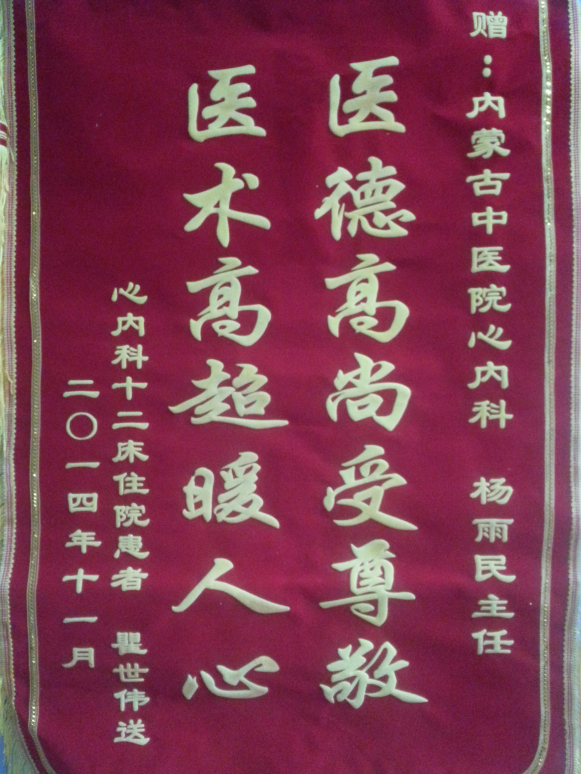 赠：内蒙古中医院心内科 杨雨民主任
医德高尚受尊敬
医术高超暖人心
心内科十二床住院患者 瞿世伟送
二〇一四年十一月